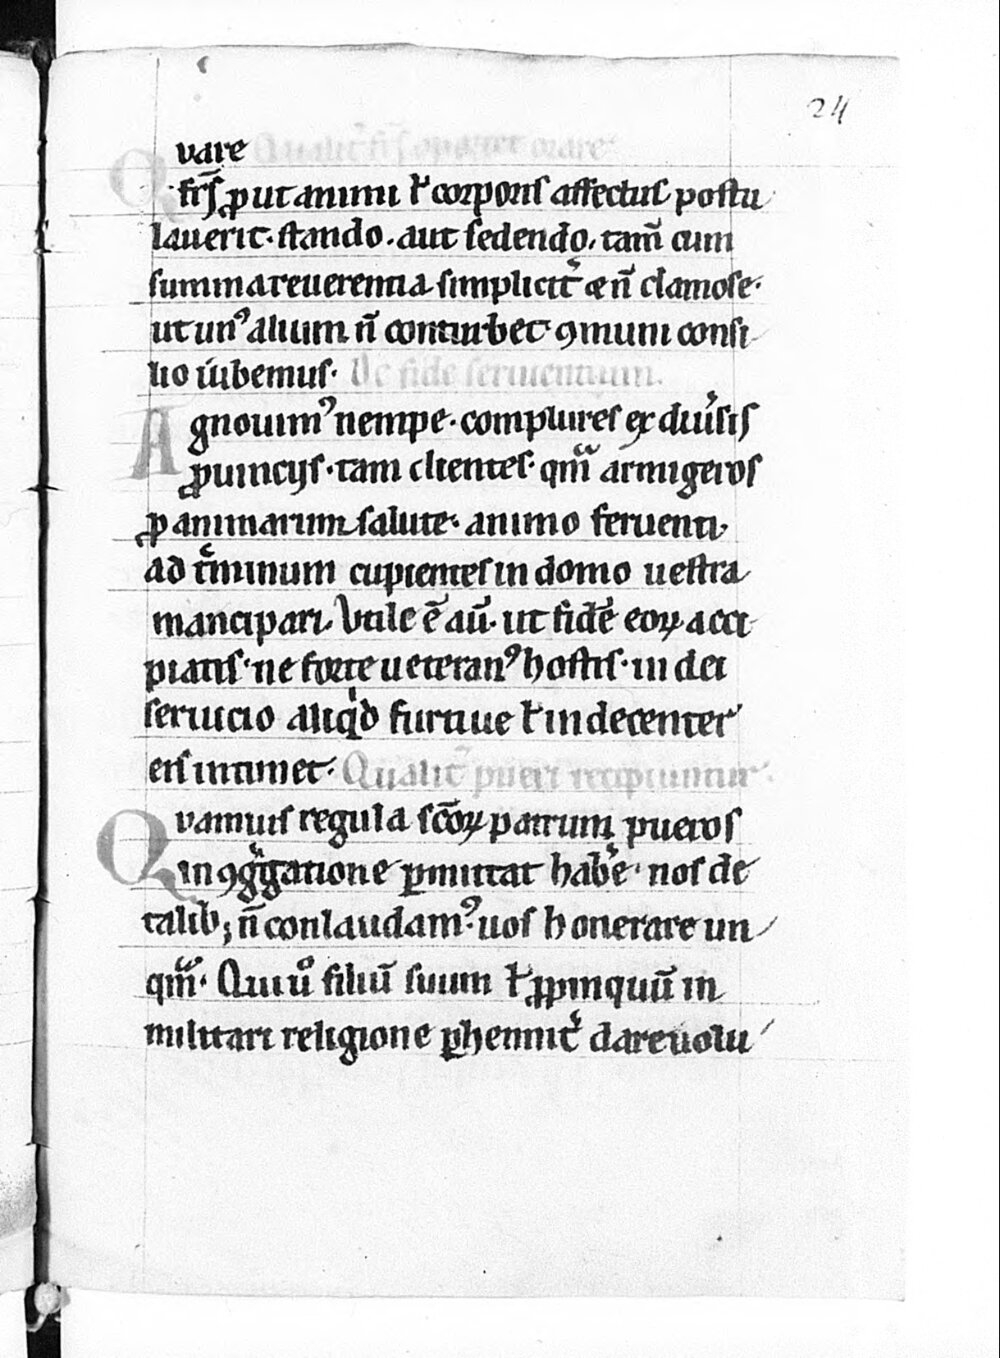 24
vare Qualit̉ fr̄s oportet orare
Q fr̄s ꝓut animi ł corporis affectus postu
lauerit. stando. aut sedendo. tam̄ cum
summa reuerentia simplicit̉ & n̄ clamose.
ut unꝰ alium n̄ conturbet ꝯmuni consi
lio iubemus. De fide seruientium.
A gnouimꝰ nempe. complures ex diu̾sis
ꝓuincijs. tam clientes. qm̄ armigeros
ꝓ animarum salute. animo feruenti
ad t̾minum cupientes in domo uestra
mancipari. Vtile ē aū. ut fidē eoꝝ acci
piatis. ne forte ueteranꝰ hostis. in dei
seruicio aliqͥd furtiue ł indecenter
eis intimet. Qualit̉ pueri recipiuntur.
Q vamuis regula sc̄oꝝ patrum pueros
in ꝯgͣgatione ꝑmittat habe̾. nos de
talib; n̄ conlaudamꝰ. uos honerare un
qm̄. Qui uͦ filiū suum ł ꝓpinquū in
militari religione ꝑhennit̾ dare uolu